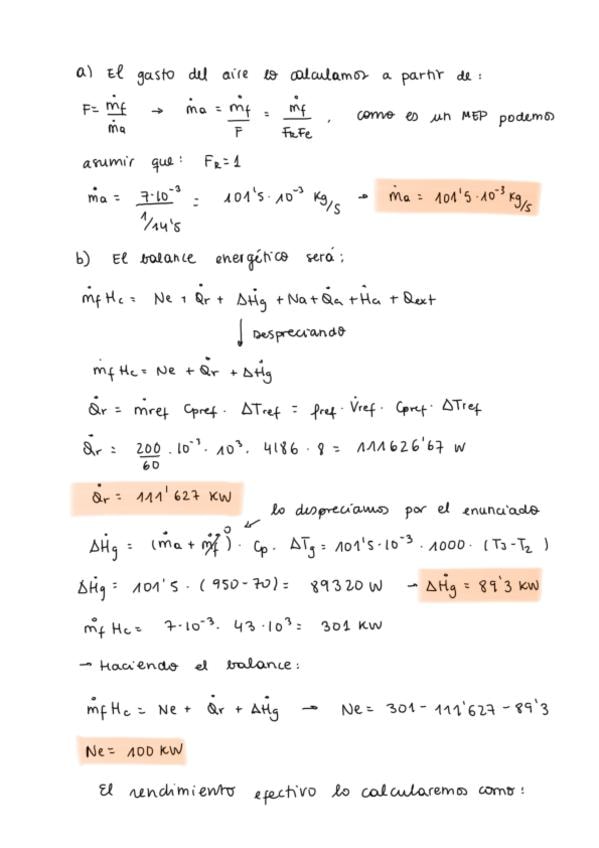 a) El gasto del aire lo calculamos a partir de:
F = ṁf/ṁa → ṁa = ṁf/F = ṁf/FRFe , como es un MEP podemos
asumir que: FR = 1
ṁa = 7·10⁻³/1/14'5 = 101'5·10⁻³ Kg/s → ṁa = 101'5·10⁻³ Kg/s
b) El balance energético será:
ṁf Hc = Ne + Q̇r + ΔḢg + Na + Q̇a + Ḣa + Qext
↓ Despreciando
ṁf Hc = Ne + Q̇r + ΔḢg
Q̇r = ṁref Cpref · ΔTref = ρref · V̇ref · Cpref · ΔTref
Q̇r = 200/60 · 10⁻³ · 10³ · 4186 · 8 = 111626'67 W
Q̇r = 111'627 KW
lo despreciamos por el enunciado
ΔḢg = (ṁa + ṁf⁰) · Cp · ΔTg = 101'5·10⁻³ · 1000 · (T3-T2)
ΔḢg = 101'5 · (950-70) = 89320 W → ΔḢg = 89'3 KW
ṁf Hc = 7·10⁻³ · 43·10³ = 301 KW
→ Haciendo el balance:
ṁf Hc = Ne + Q̇r + ΔḢg → Ne = 301 - 111'627 - 89'3
Ne = 100 KW
El rendimiento efectivo lo calcularemos como: